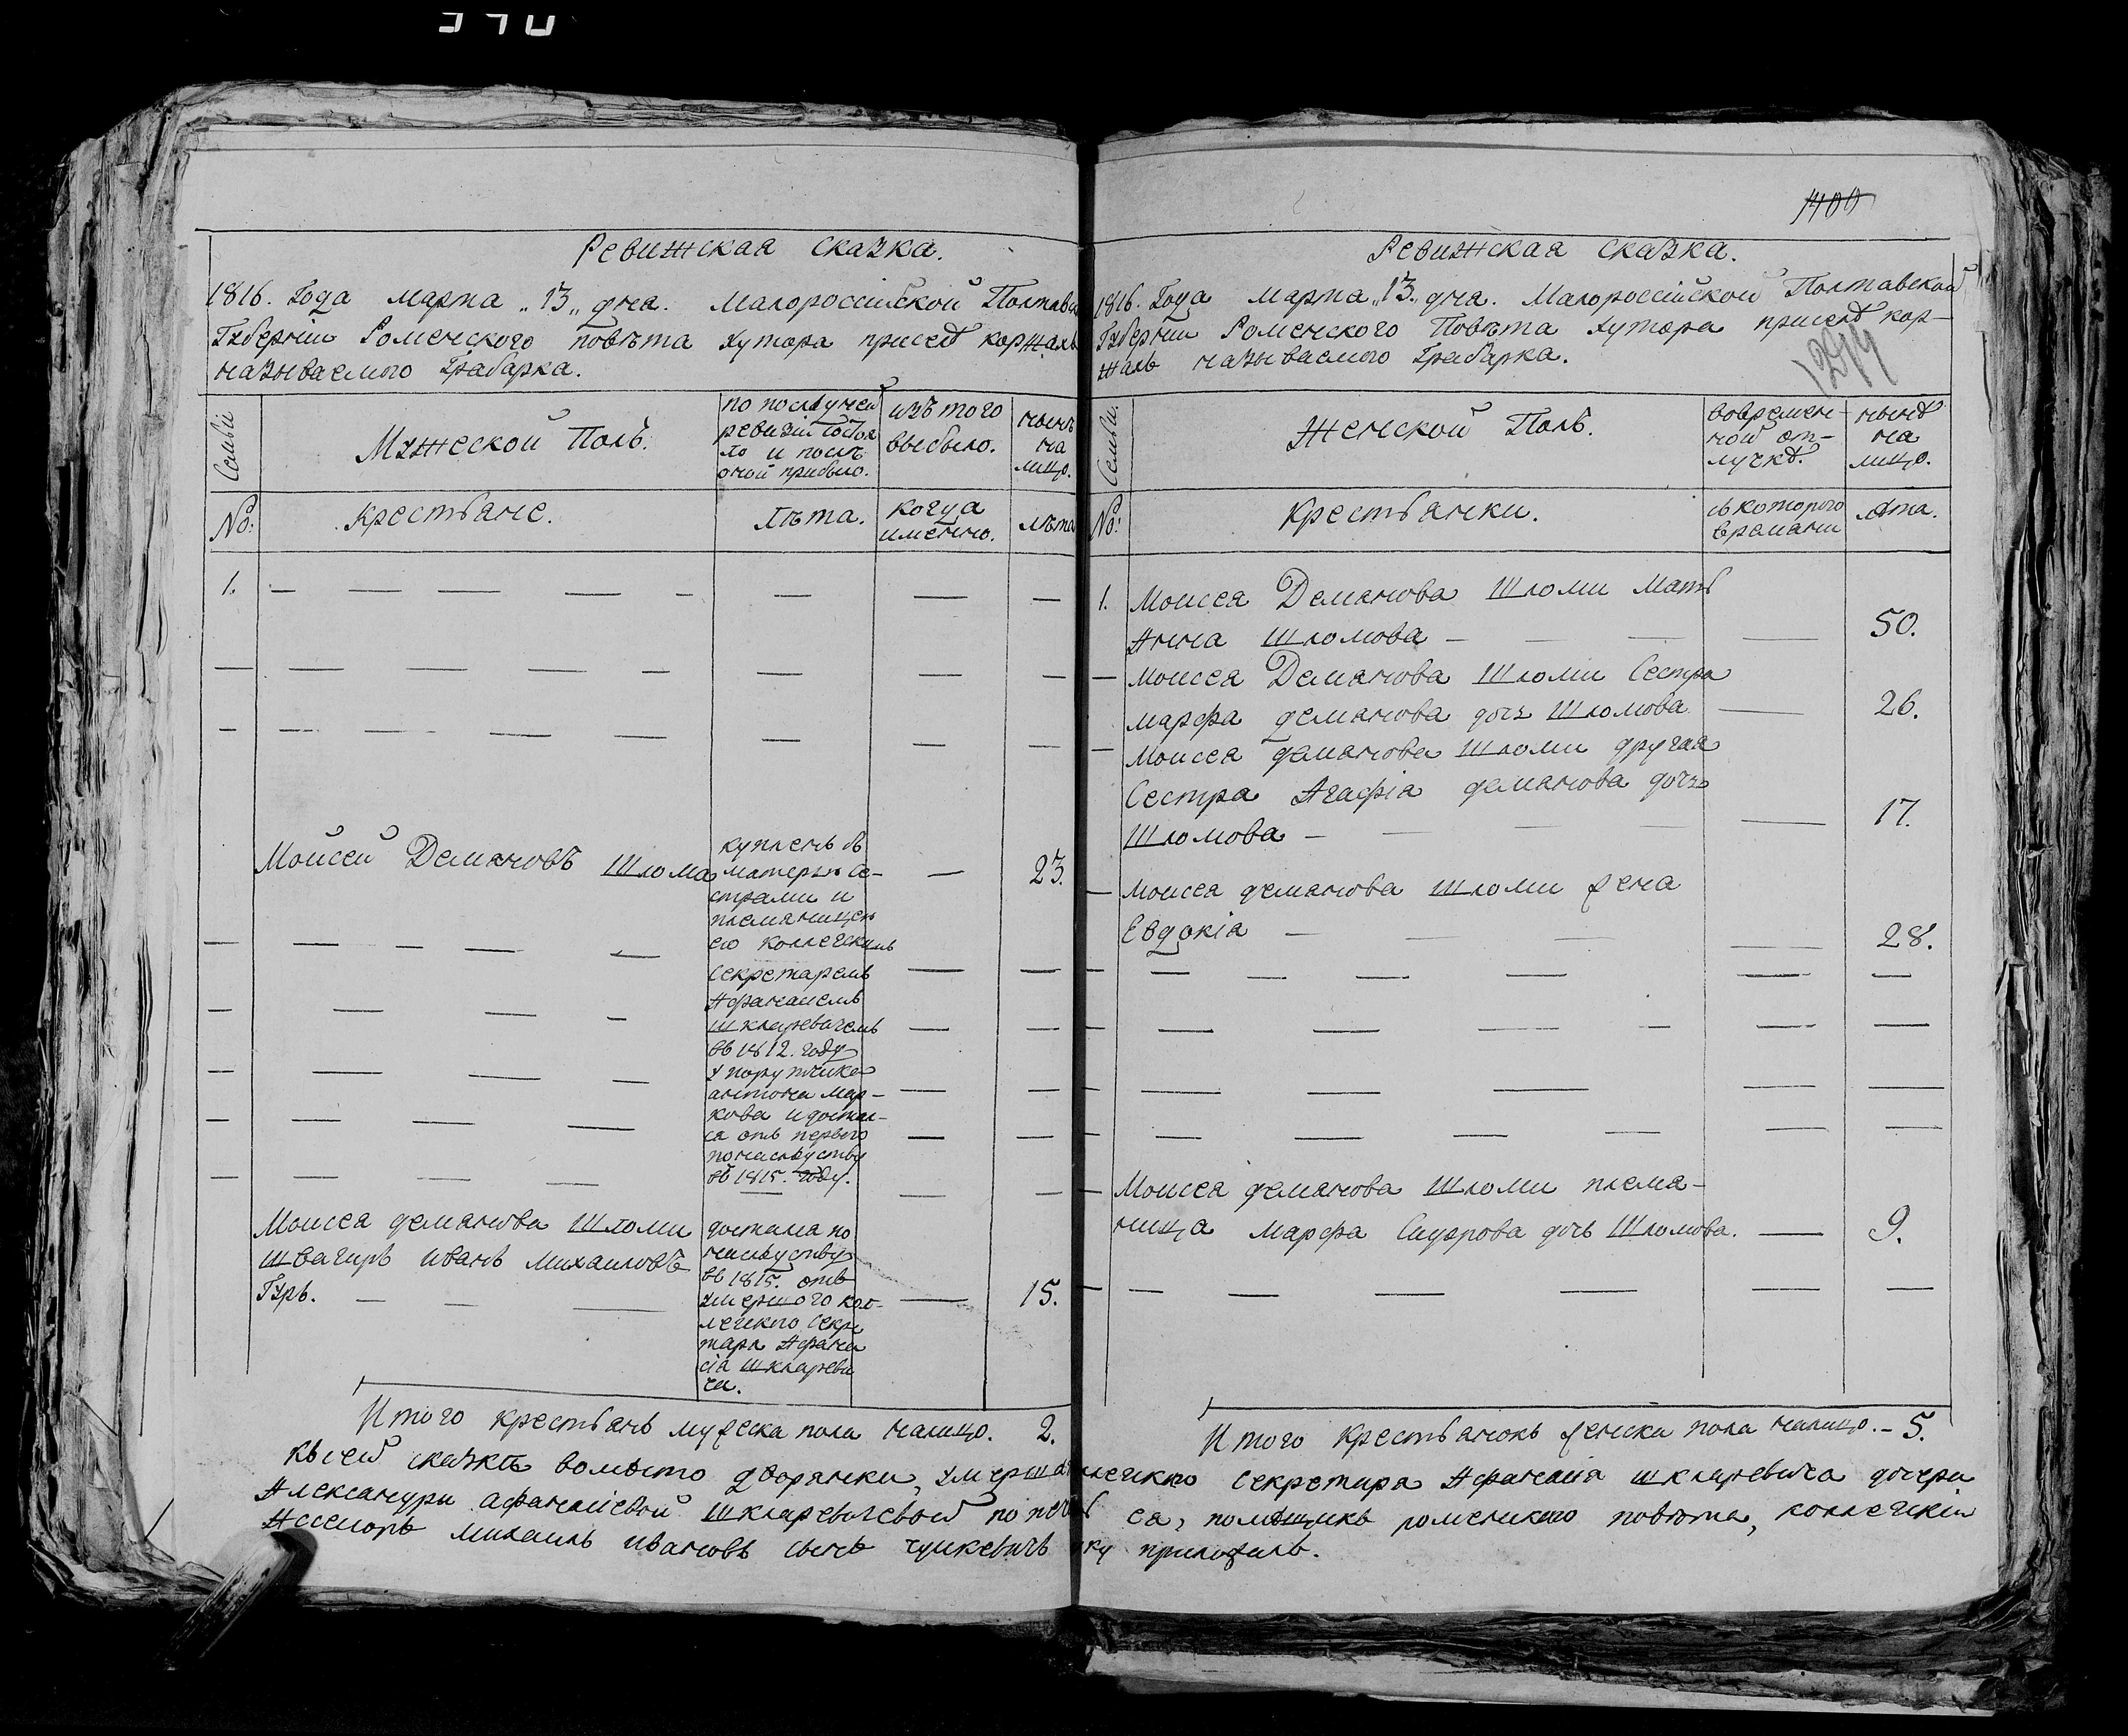 Ревижская сказка.
1816. Года марта „13„ дня. Малороссійской Полтавс
Губерніи Роменского повѣта хутора присей коржахъ
называемого Грабарка.
Семьи
Мужеской Полъ.
по послѣдней
ревизіи состоя
ло и послѣ
оной прибыло.
изъ того
выбыло.
нынѣ
на
лицо.
№:
крестьяне.
лѣта.
когда
именно.
лѣта
1.
Моисей Демяновъ Шлома
купленъ съ
матерью се-
страми и
племяницею
его коллегскимъ
секретаремъ
Афанасиемъ
шкляревичемъ
въ 1812. году
у порутчика
антона мар-
кова и достал-
ся отъ первого
по наслѣдству
въ 1815. году.
23.
Моисея демянова Шломи
швагиръ иванъ михаиловъ
Гзръ.
достался по
наслѣдству
въ 1815. отъ
умершого кол-
легского секре
таря Афана
сія шкляреви
ча.
15.
Итого крестьянъ мужеска пола налицо. 2.
Ревижская сказка.
1400
1816. Года марта „13„ дня. Малороссійской Полтавской
Губерніи Роменского Повѣта хутора присей кор-
жахъ называемого Грабарка.
Семьи.
Женской Полъ.
вовремен-
ной от-
лучкѣ.
нынѣ
на
лицо.
№:
Крестьянки.
съ которого
времани
лѣта.
1. Моисея Демянова Шломи мать
Анна Шломова 50.
Моисея Демянова Шломи Сестра
марфа демянова дочь Шломова 26.
Моисея демянова Шломи другая
Сестра Агафія демянова дочь
Шломова 17.
Моисея демянова Шломи жена
Евдокія 28.
Моисея демянова Шломи племя-
ница марфа Сидорова дочь Шломова. 9.
Итого Крестьянокъ женска пола налицо. 5.
Къ сей сказкѣ вомѣсто дворянки, умершаго коллегского Секретира Афанасія шкляревича дочери
Александры афанасіевой шкляревичевой по печ ся, помѣщикъ роменского повѣта, коллегскій
Ассесоръ михаилъ ивановъ сынъ руку приложилъ.